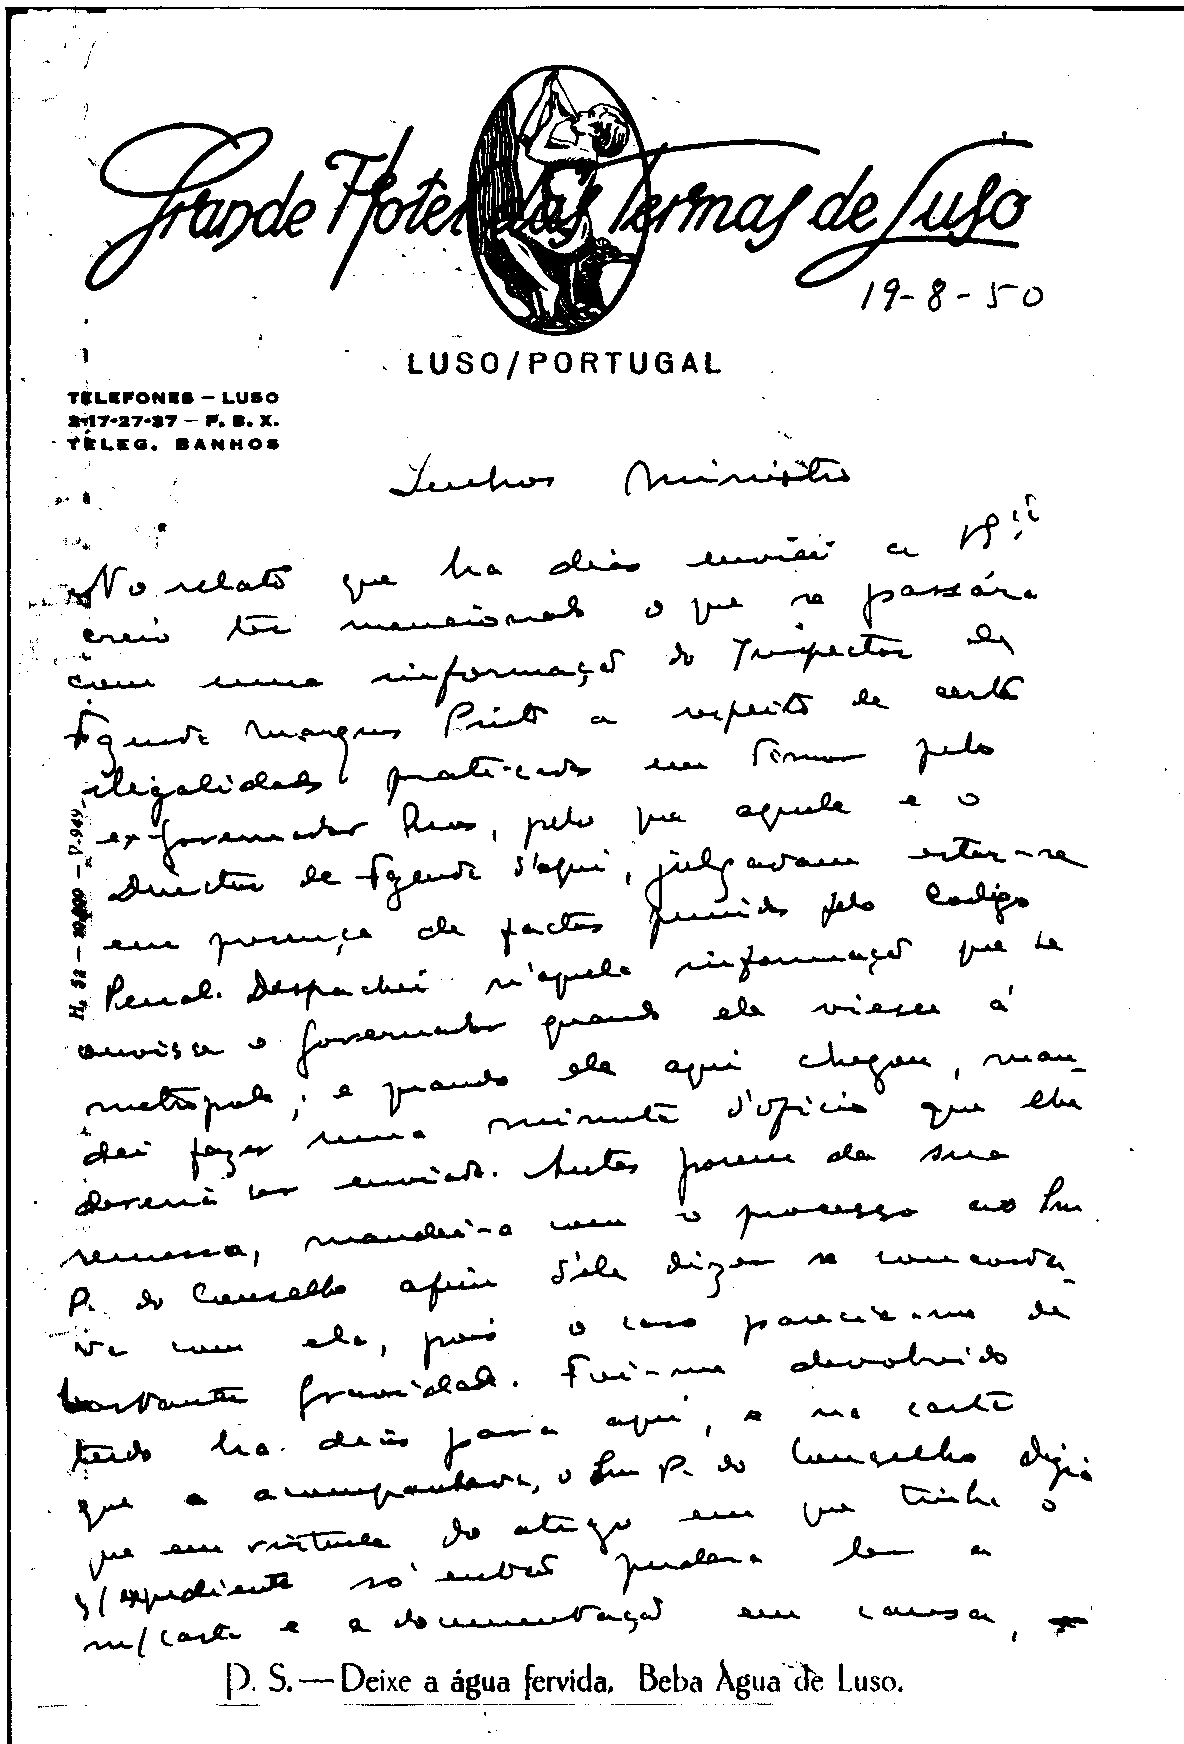 Grande Hotel das Termas de Luso
19-8-50
LUSO/PORTUGAL
TELEFONES — LUSO
2-17-27-37 — P. B. X.
TELEG. BANHOS
Senhor Ministro
No relato que ha dias enviei a
creio ter mencionado o que se passára
com uma informação do Inspector de
Fazenda Marques Pinto a respeito de certas
ilegalidades praticadas em Timor pelo
ex-governador Ruas, pelo que aquele e o
Director de Fazenda d'aqui, julgavam estar-se
em presença de factos punidos pelo Codigo
Penal. Despachei n'aquela informação que se
ouvisse o governador quando ele viesse á
metropole; e quando ele aqui chegou, man-
dei fazer uma minuta d'oficio que lhe
deveria ser enviado. Antes porem da sua
remessa, mandei-a com o processo ao Snr
P. do Conselho afim d'ele dizer se concorda-
va com ela, pois o caso parecia-me de
bastante gravidade. Foi-me devolvido
tudo ha dias para aqui, e na carta
que a acompanhava, o Snr P. do Conselho dizia
que em virtude do atrazo em que tinha o
s/expediente só então pudera ler a
m/carta e a documentação em causa,
H. 52 — — 7-949
P. S. — Deixe a água fervida. Beba Água de Luso.